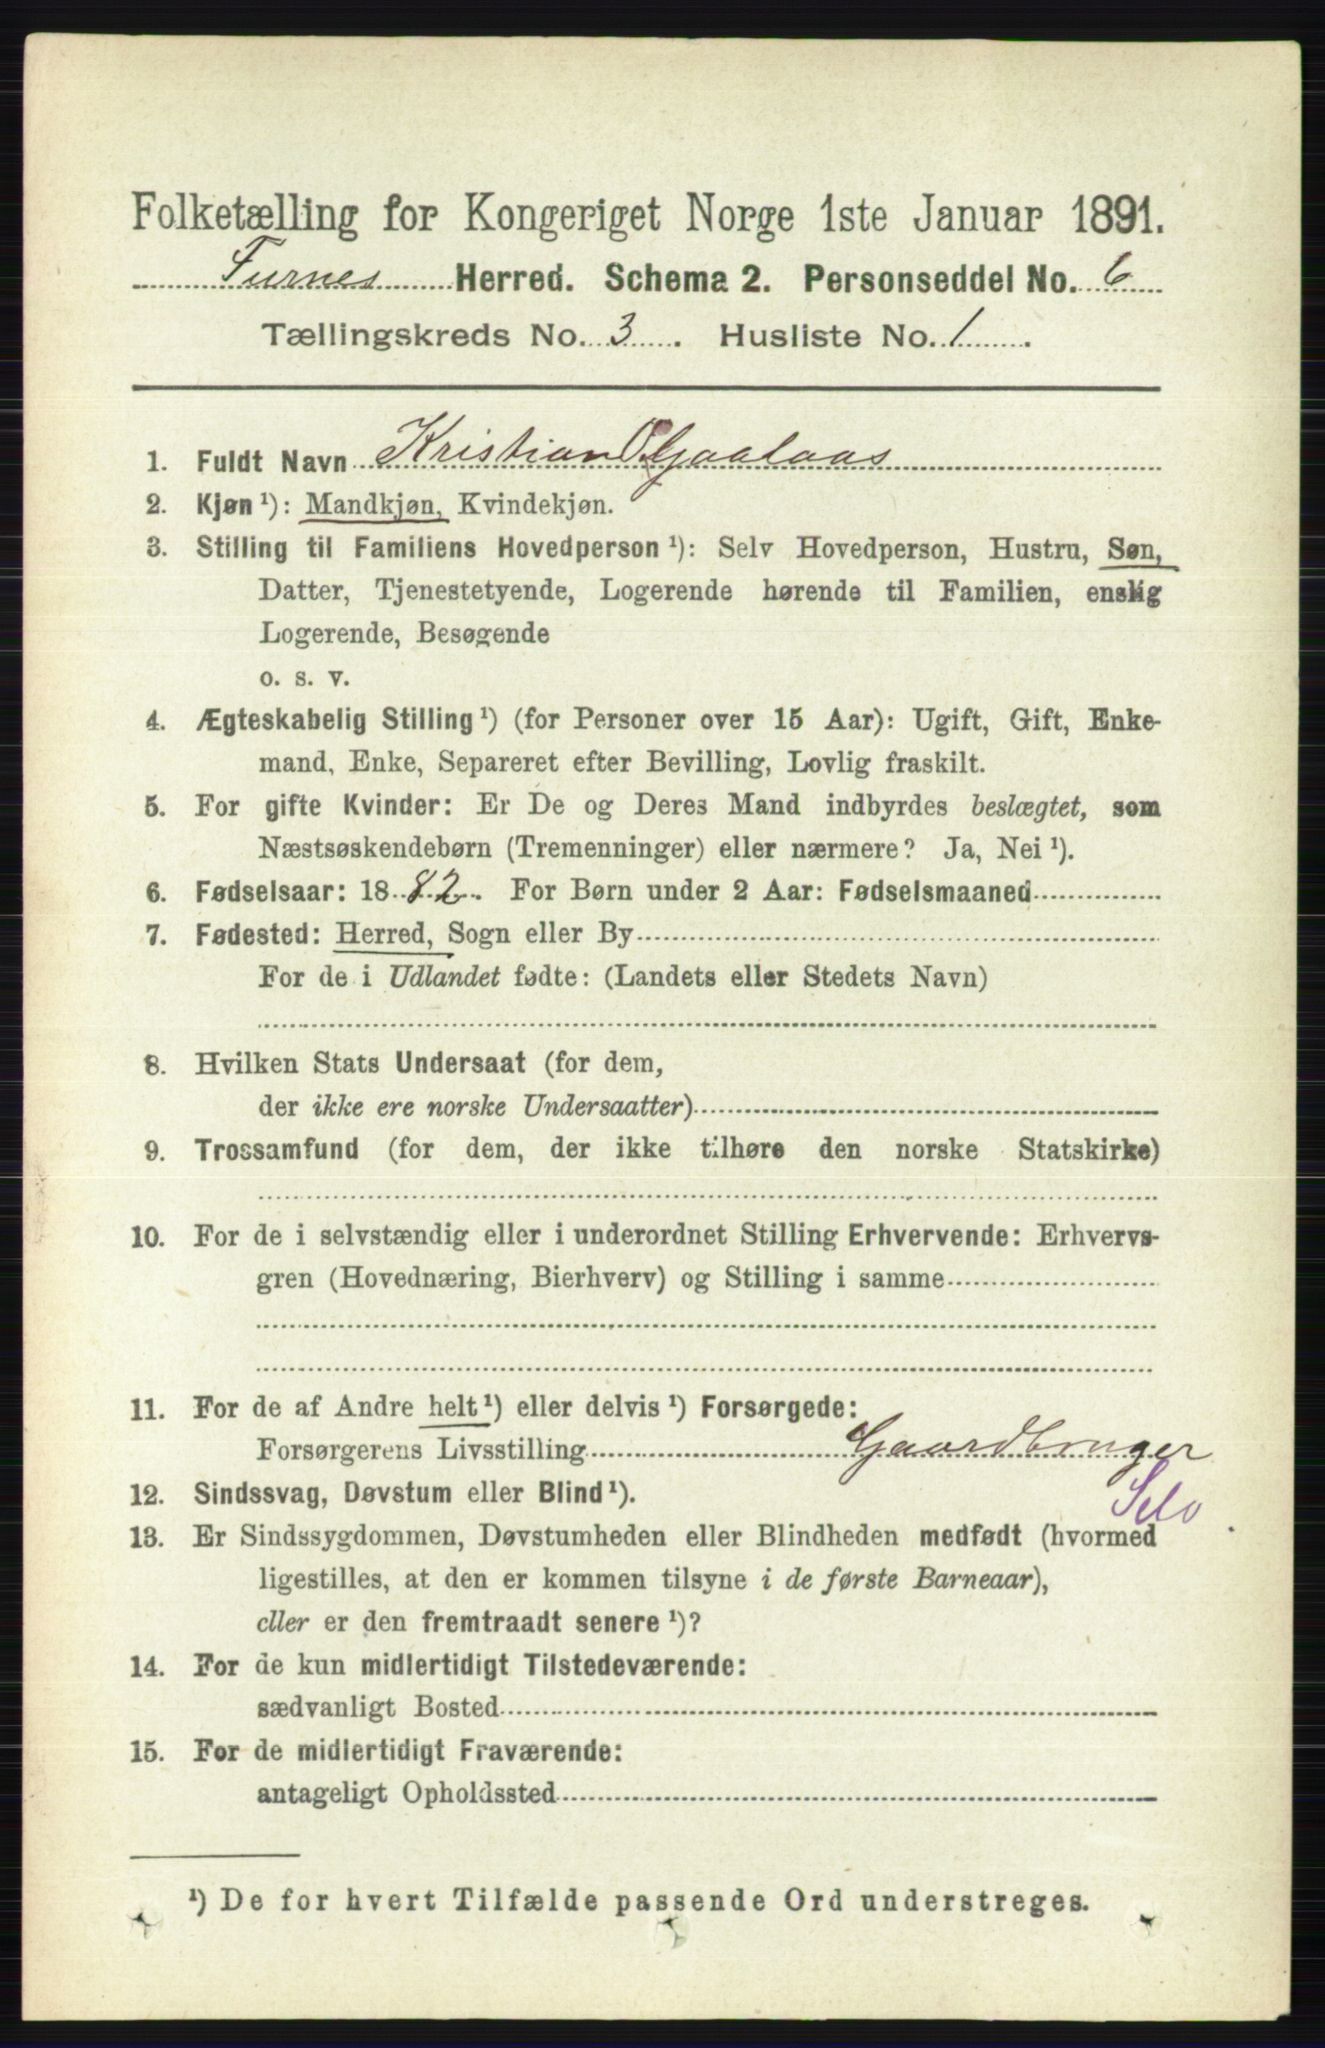 Folketælling for Kongeriget Norge 1ste Januar 1891.
Furnes Herred. Schema 2. Personseddel No. 6
Tællingskreds No. 3. Husliste No. 1.
1. Fuldt Navn Kristian O. Gaalaas
2. Kjøn ¹): Mandkjøn, Kvindekjøn.
3. Stilling til Familiens Hovedperson ¹): Selv Hovedperson, Hustru, Søn,
Datter, Tjenestetyende, Logerende hørende til Familien, enslig
Logerende, Besøgende
o. s. v.
4. Ægteskabelig Stilling ¹) (for Personer over 15 Aar): Ugift, Gift, Enke-
mand, Enke, Separeret efter Bevilling, Lovlig fraskilt.
5. For gifte Kvinder: Er De og Deres Mand indbyrdes beslægtet, som
Næstsøskendebørn (Tremenninger) eller nærmere? Ja, Nei ¹).
6. Fødselsaar: 1882. For Børn under 2 Aar: Fødselsmaaned
7. Fødested: Herred, Sogn eller By
For de i Udlandet fødte: (Landets eller Stedets Navn)
8. Hvilken Stats Undersaat (for dem,
der ikke ere norske Undersaatter)
9. Trossamfund (for dem, der ikke tilhøre den norske Statskirke)
10. For de i selvstændig eller i underordnet Stilling Erhvervende: Erhvervs-
gren (Hovednæring, Bierhverv) og Stilling i samme
11. For de af Andre helt ¹) eller delvis ¹) Forsørgede:
Forsørgerens Livsstilling Gaardbruger
Selv
12. Sindssvag, Døvstum eller Blind ¹).
13. Er Sindssygdommen, Døvstumheden eller Blindheden medfødt (hvormed
ligestilles, at den er kommen tilsyne i de første Barneaar),
eller er den fremtraadt senere ¹)?
14. For de kun midlertidigt Tilstedeværende:
sædvanligt Bosted
15. For de midlertidigt Fraværende:
antageligt Opholdssted
¹) De for hvert Tilfælde passende Ord understreges.